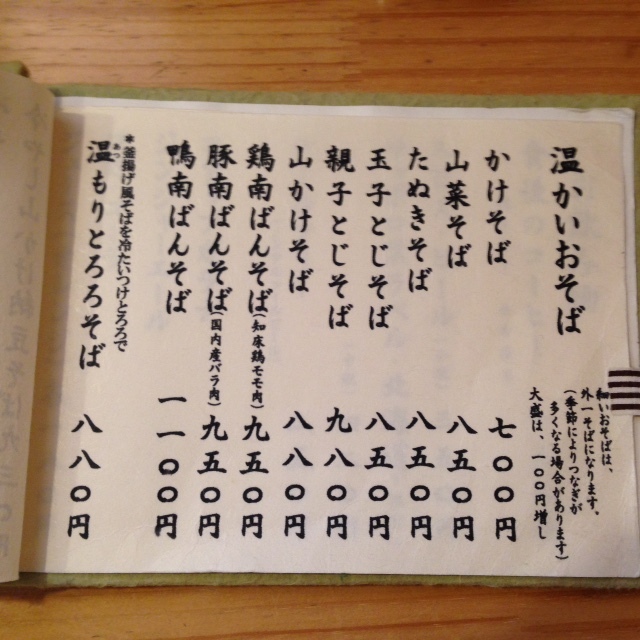 温かいおそば
いおそばは、
外一そばになります。
(季節によりつなぎが
多くなる場合があります)
大盛は、一〇〇円増し
かけそば 七〇〇円
山菜そば 八五〇円
たぬきそば 八五〇円
玉子とじそば 八五〇円
親子とじそば 九八〇円
山かけそば 八八〇円
鶏南ばんそば(知床鶏モモ肉) 九五〇円
豚南ばんそば(国内産バラ肉) 九五〇円
鴨南ばんそば 一一〇〇円
*釜揚げ風そばを冷たいつけとろろで
温もりとろろそば 八八〇円
あつ